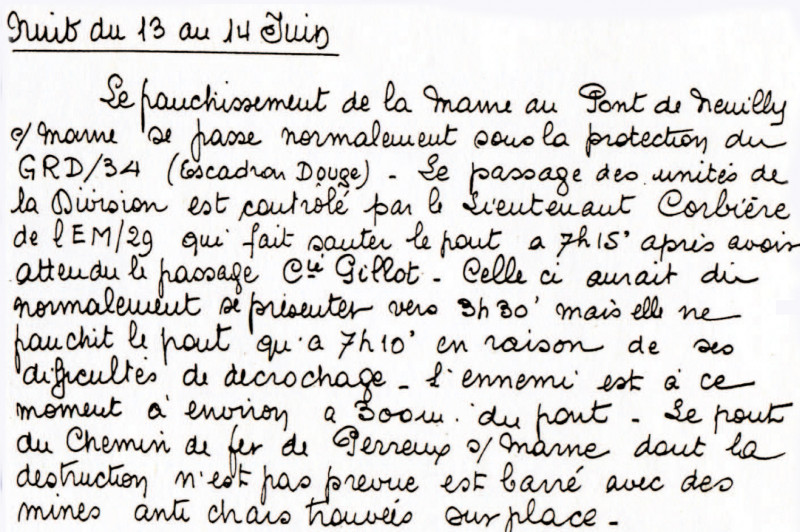 Nuit du 13 au 14 Juin
Le franchissement de la Marne au Pont de Neuilly
s/Marne se passe normalement sous la protection du
GRD/34 (Escadron Douge) - Le passage des unités de
la Division est contrôlé par le Lieutenant Corbière
de l'EM/29 qui fait sauter le pont a 7h15' après avoir
attendu le passage Cie Gillot - Celle ci aurait du
normalement se présenter vers 3h30' mais elle ne
franchit le pont qu'a 7h10' en raison de ses
difficultés de decrochage - l'ennemi est à ce
moment à environ a 300m. du pont - Le pont
du Chemin de fer de Perreux s/Marne dont la
destruction n'est pas prevue est barré avec des
mines anti chars trouvées sur place -